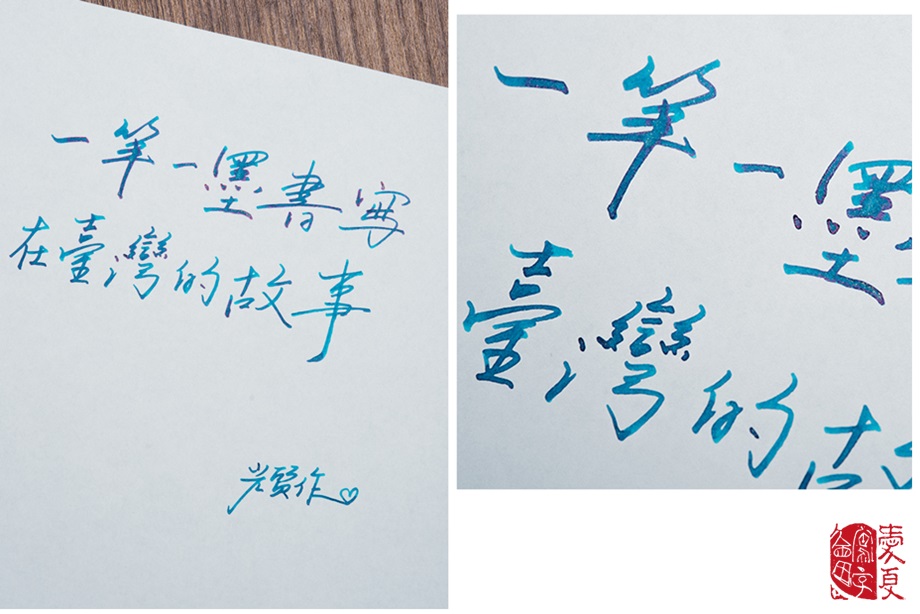 一筆一墨書寫
在臺灣的故事
賢作
一筆一墨
臺灣的故